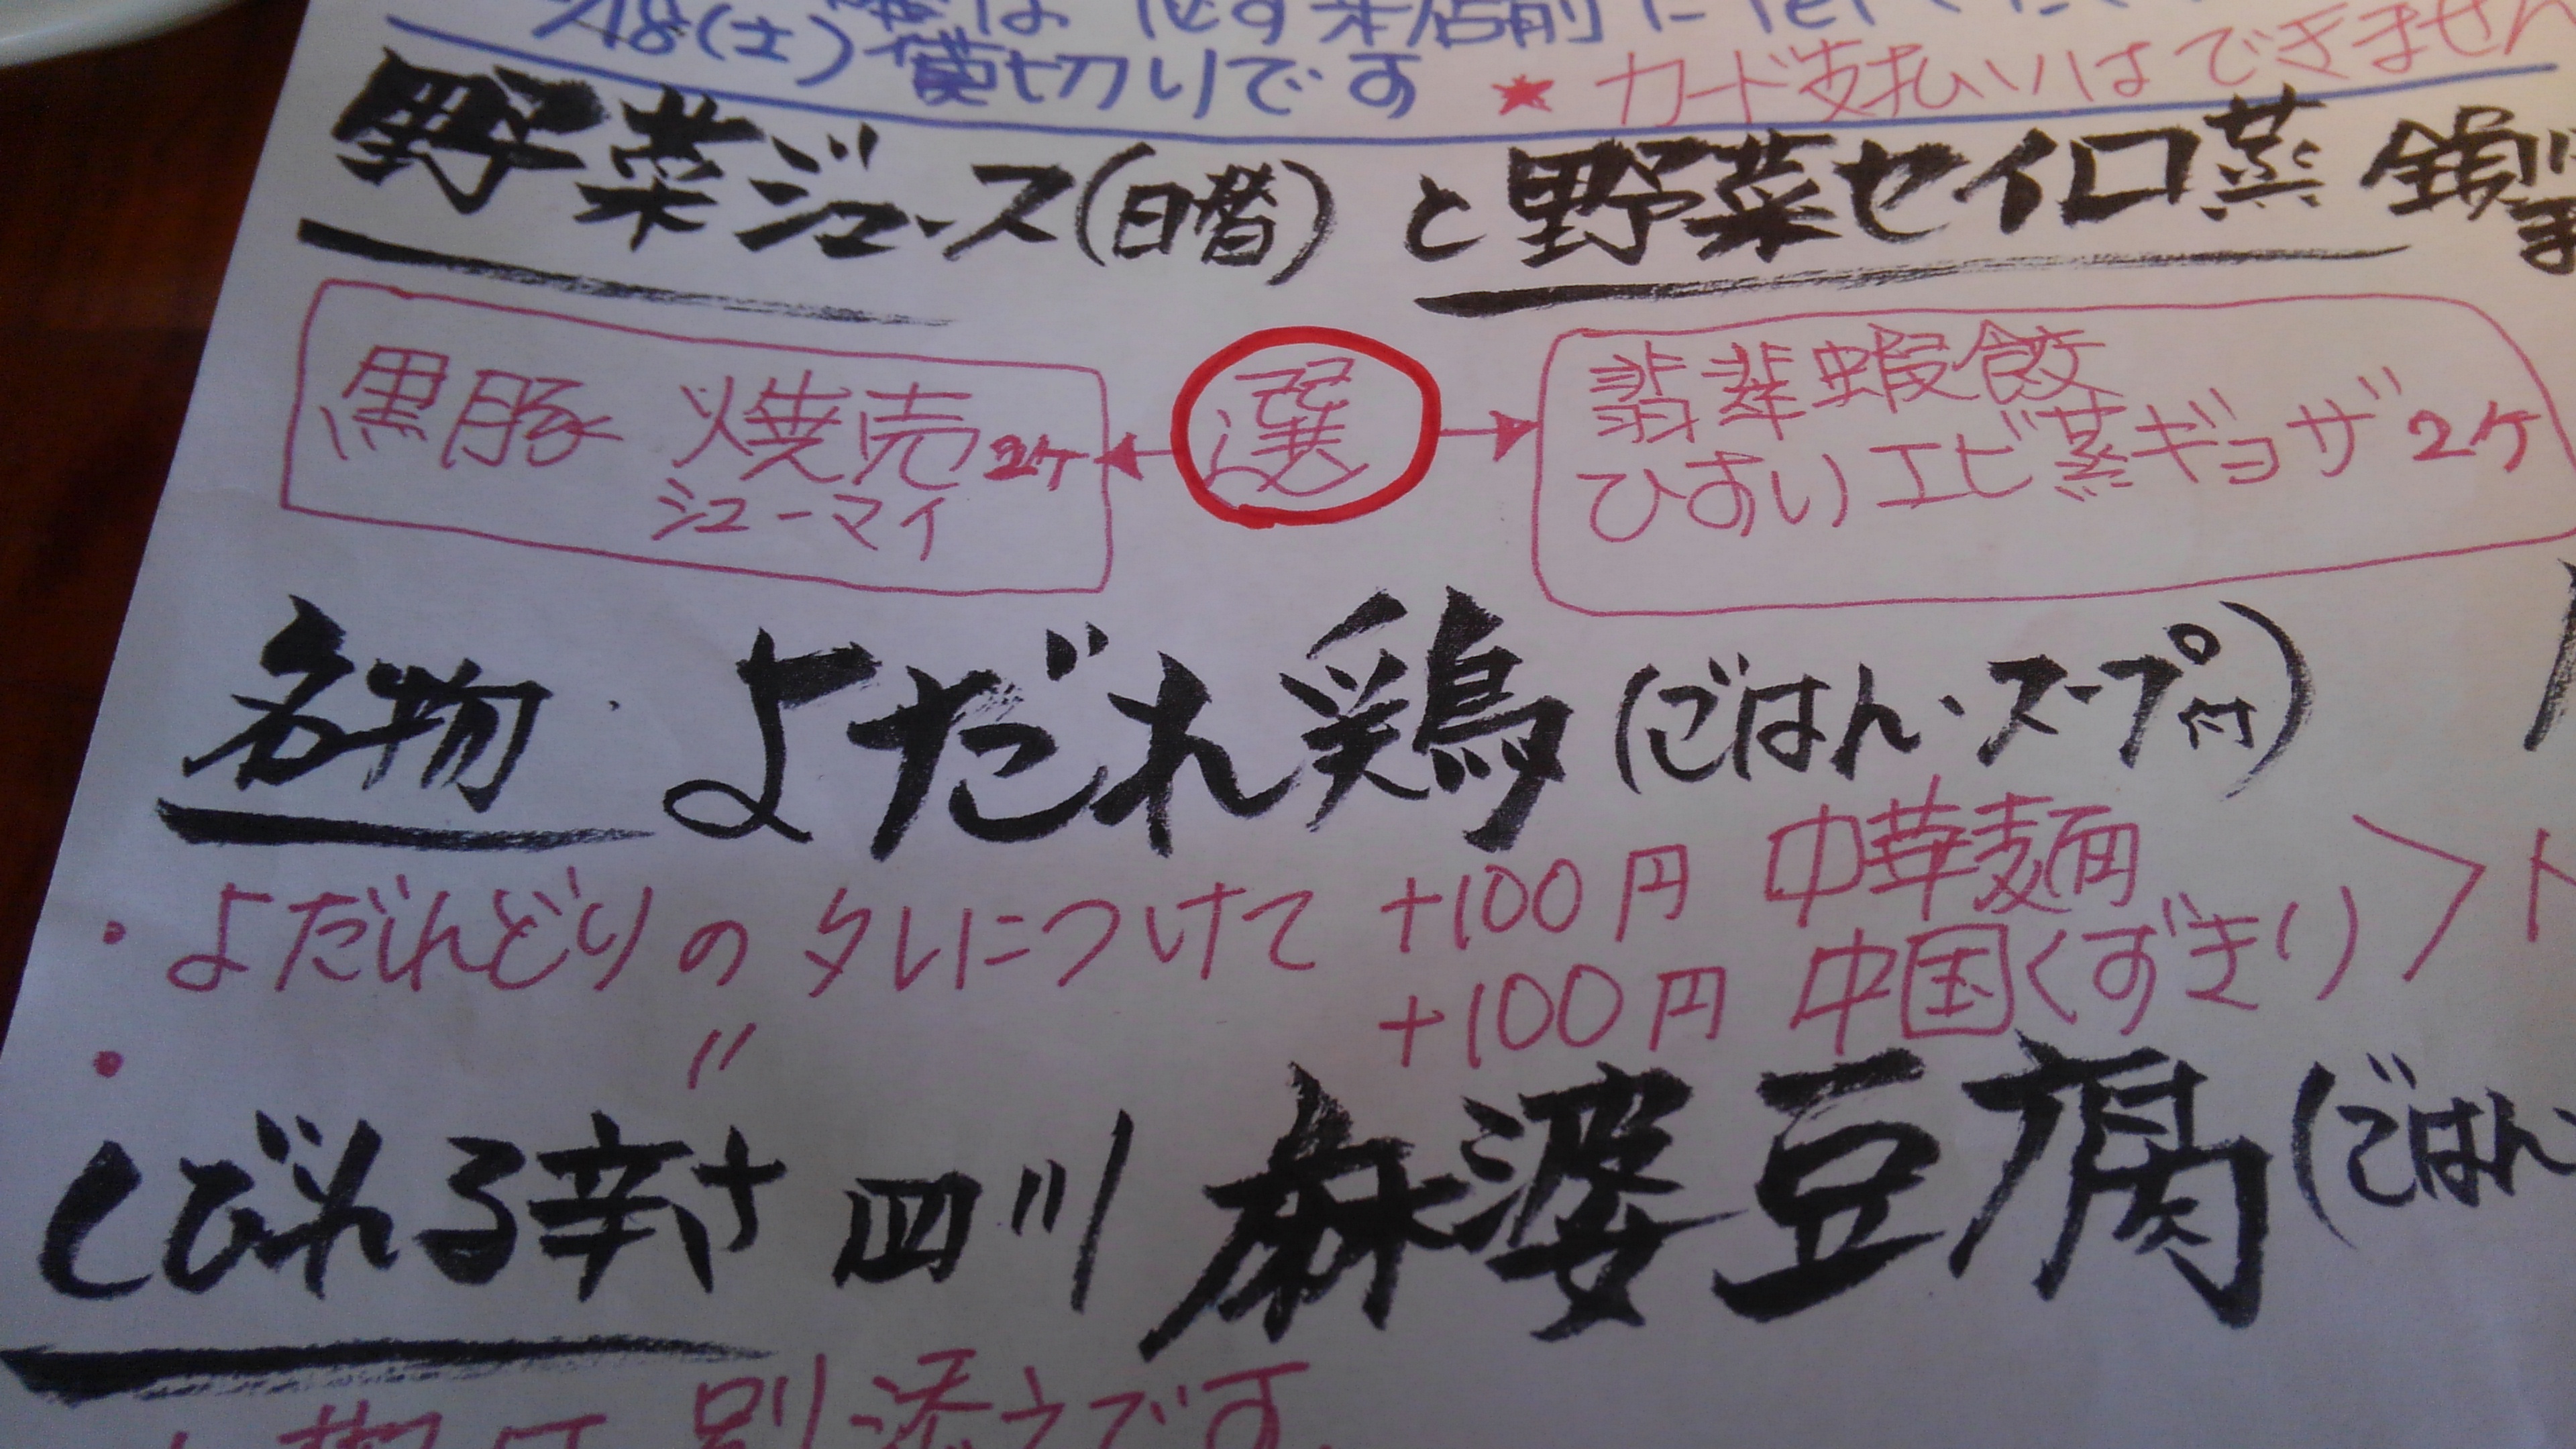 必ず来店前にTel
18(土)貸切りです ★カード支払いはできません
野菜ジュース(日替)と野菜セイロ蒸
黒豚 焼売2ケ
シューマイ
選
翡翠蝦餃
ひすいエビ蒸ギョウザ2ケ
名物 よだれ鶏(ごはん・スープ付)
・よだれどりのタレにつけて +100円 中華麺
・〃 +100円 中国くずきり
しびれる辛さ 四川 麻婆豆腐(ごはん
別添えです